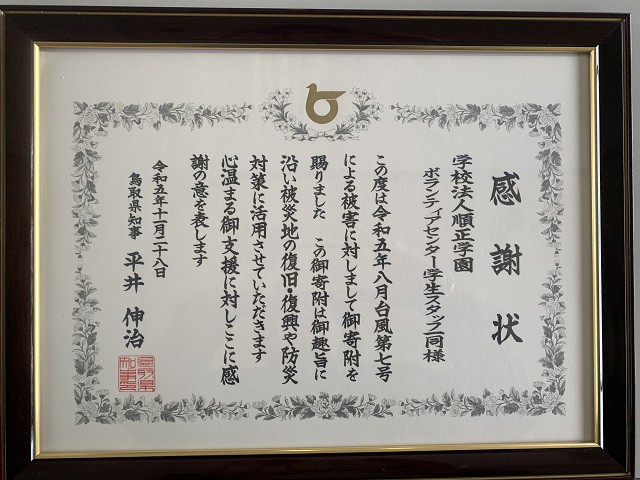 感謝状
学校法人順正学園
ボランティアセンター学生スタッフ一同様
この度は令和五年八月台風第七号
による被害に対しまして御寄附を
賜りました　この御寄附は御趣旨に
沿い被災地の復旧・復興や防災
対策に活用させていただきます
心温まる御支援に対しここに感
謝の意を表します
令和五年十一月二十八日
鳥取県知事　平井伸治